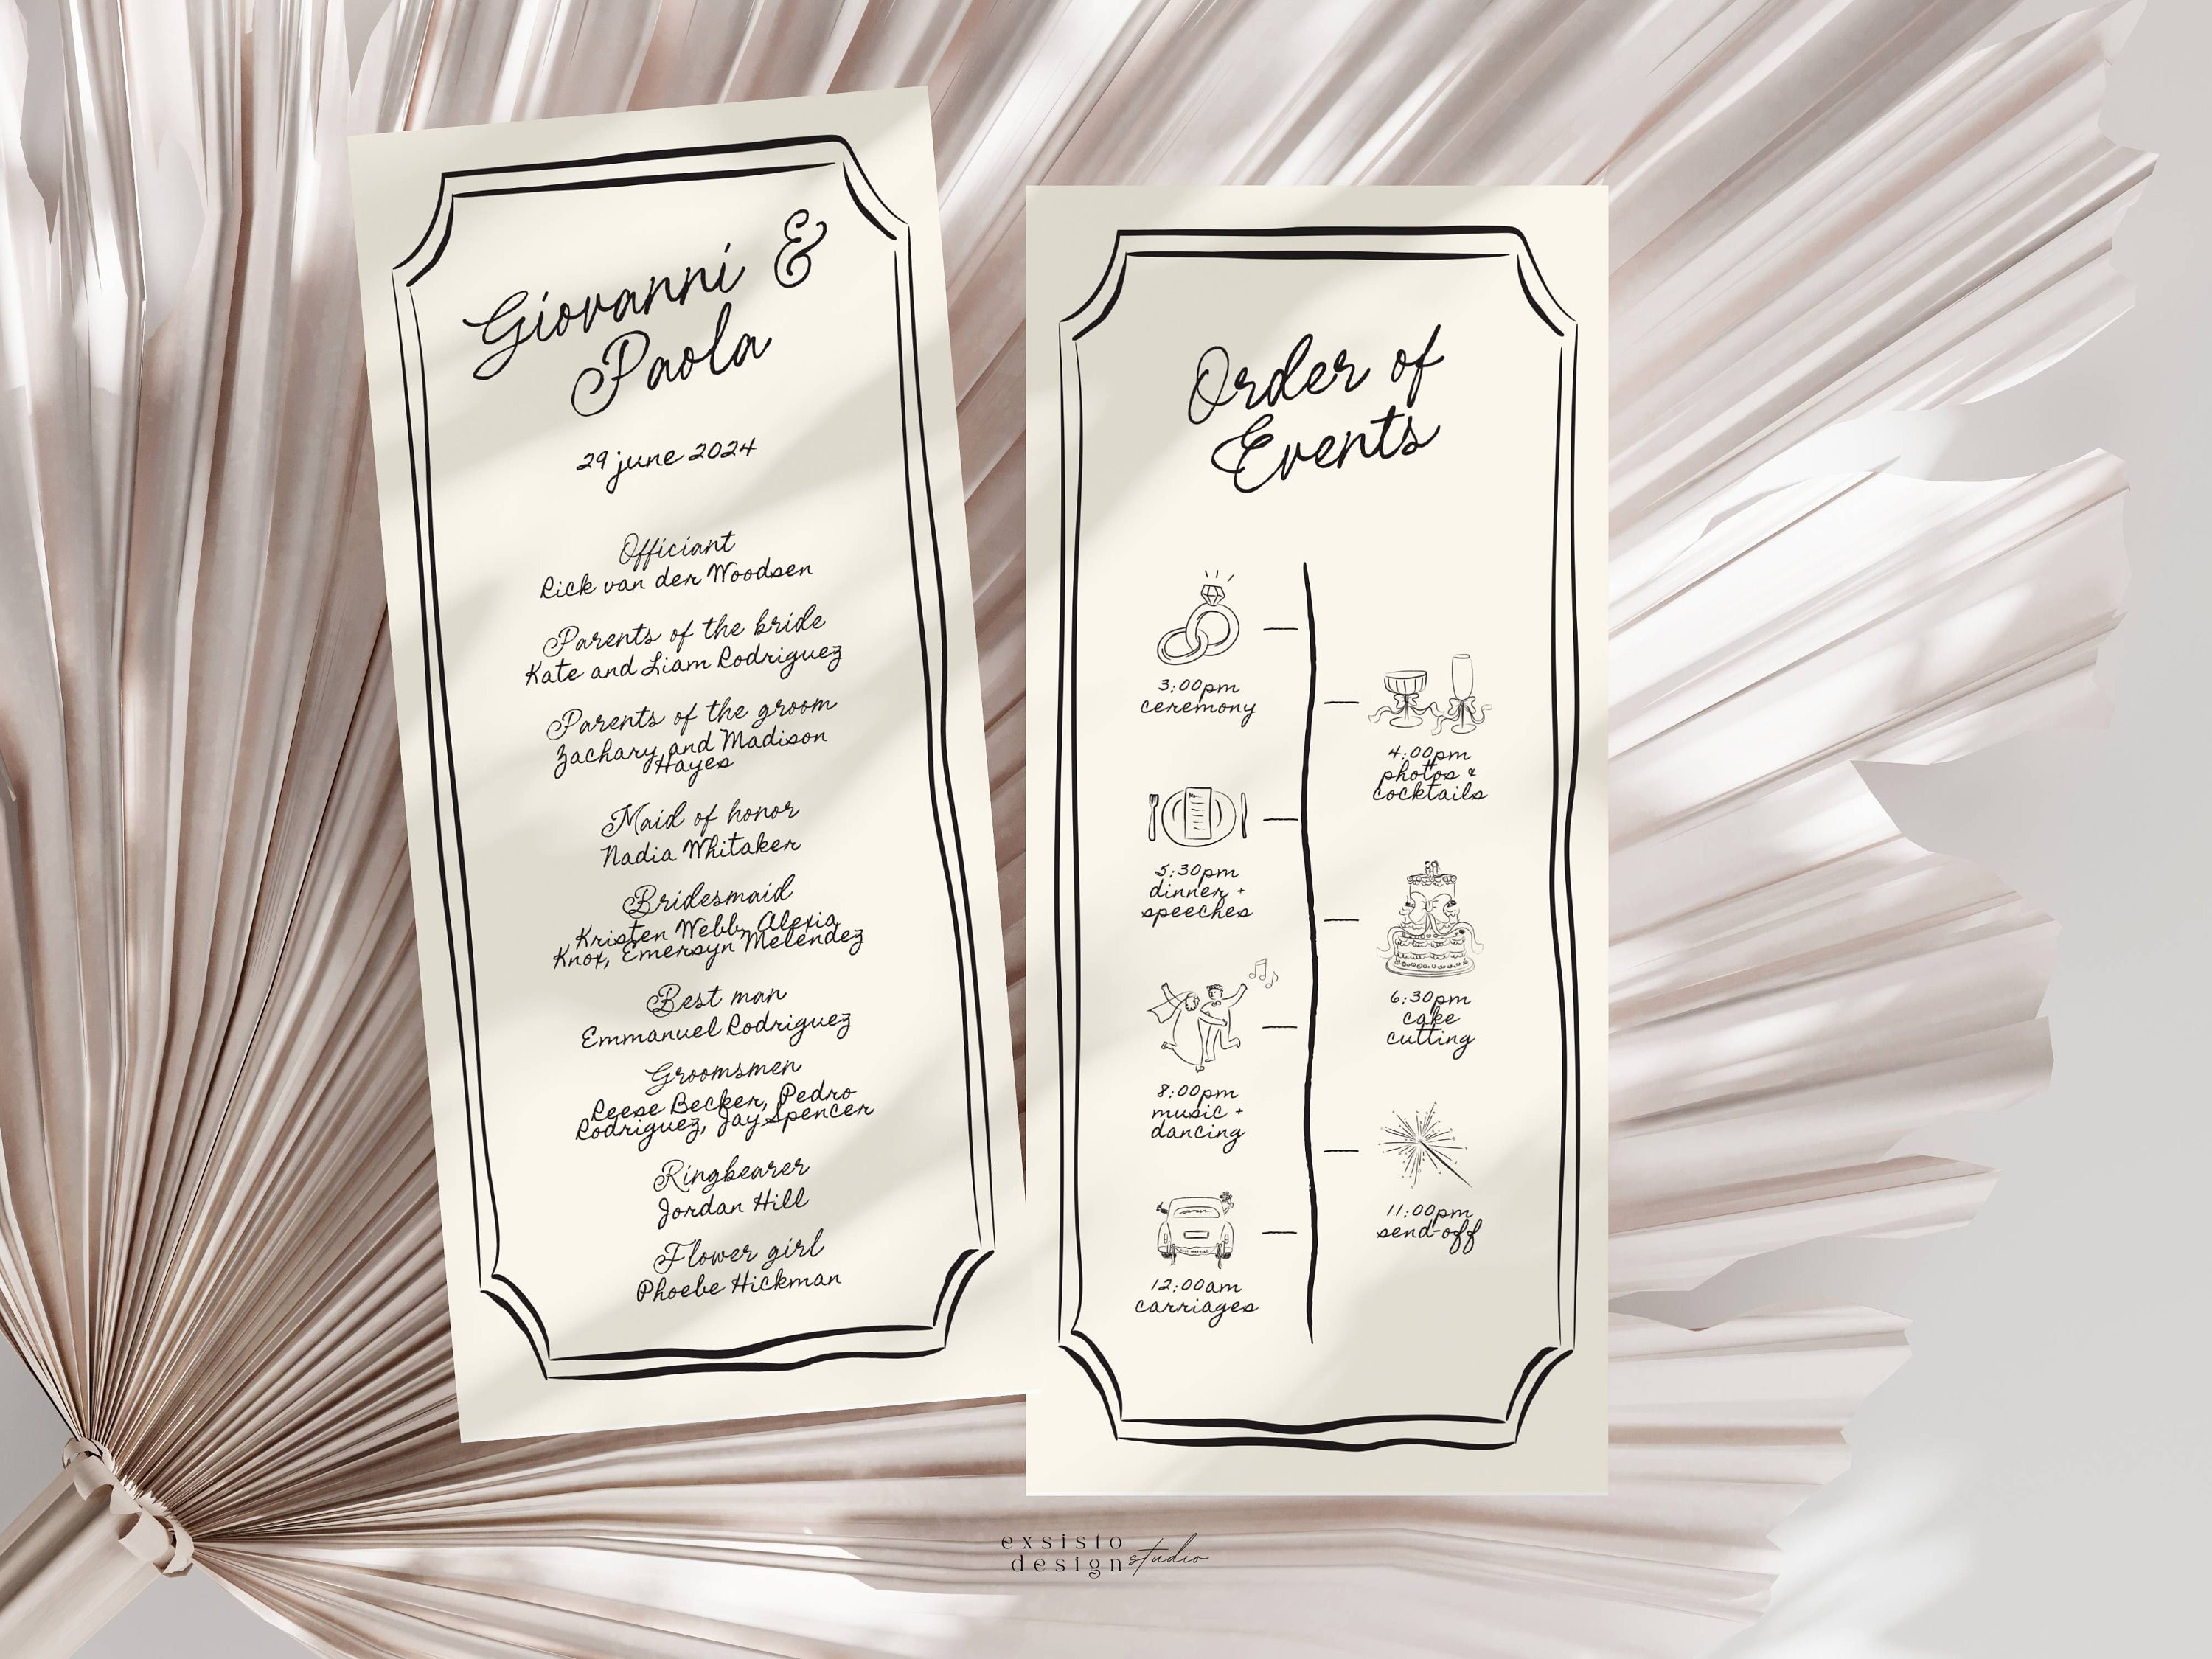 Giovanni &
Paola
29 june 2024
Officiant
Rick van der Woodsen
Parents of the bride
Kate and Liam Rodriguez
Parents of the groom
Zachary and Madison
Hayes
Maid of honor
Nadia Whitaker
Bridesmaid
Kristen Webb, Alexia
Knox, Emersyn Melendez
Best man
Emmanuel Rodriguez
Groomsmen
Reese Becker, Pedro
Rodriguez, Jay Spencer
Ringbearer
Jordan Hill
Flower girl
Phoebe Hickman
Order of
Events
3:00pm
ceremony
4:00pm
photos &
cocktails
5:30pm
dinner +
speeches
6:30pm
cake
cutting
8:00pm
music +
dancing
11:00pm
send-off
12:00am
carriages
exsisto
design studio